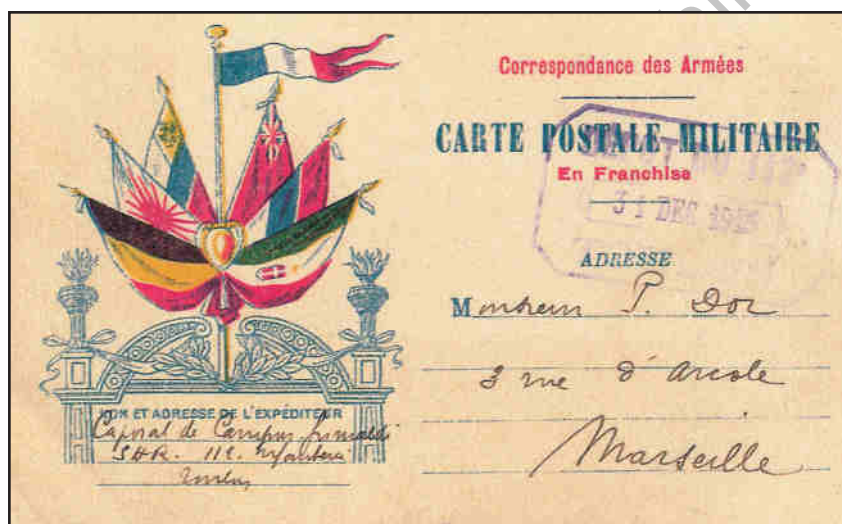 Correspondance des Armées
CARTE POSTALE MILITAIRE
En Franchise
31 DEC
ADRESSE
Monsieur P. Dor
3 rue d'Arcole
Marseille
NOM ET ADRESSE DE L'EXPÉDITEUR
Caporal de Campus Grimaldi
S.H.R. 112.